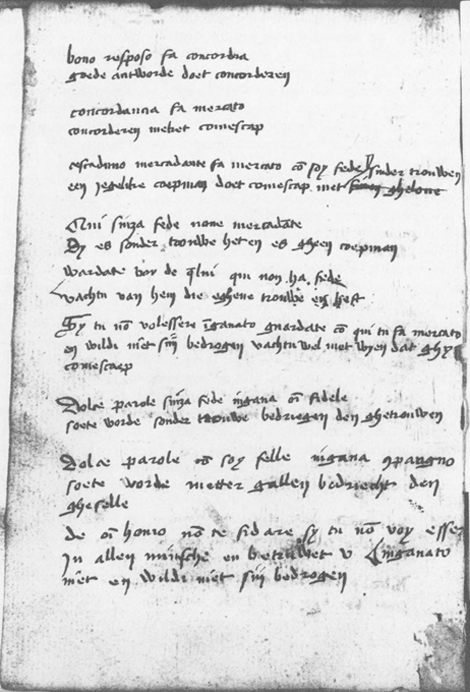 bono resposo fa concordia
goede antworde doet concorderen
concordancia fa mercato
concorderen metiet comescap
cascaduno mercadante fa mercato cō soy fede sinder trouwen
een jegelike coepman doet comescap met ghelove
Qui sinza fede none mercadāte
Dy es sonder trouwe het en es gheen coepman
wardate voy de q̄lui qui non ha fede
wachtu van hem die eghene trouwe en heft
Sy tu nō volessere īganato guardate cō qui tu fa mercato
en wildi niet sijn bedrogen wachtu wel met wyen dat ghy
comescap
Dolce parole sinza fede ingana on̄ fidele
soete worde sonder trouwe bedriegen den ghetrouwen
Dolce parole cō soy felle ingana 9pangno
soete worde metter gallen bedriecht den
gheselle
de on̄ homo nō te fidare sy tu nō voy esser
In allen mintsche en betruwet u Linganato
niet en wildi niet sijn bedrogen